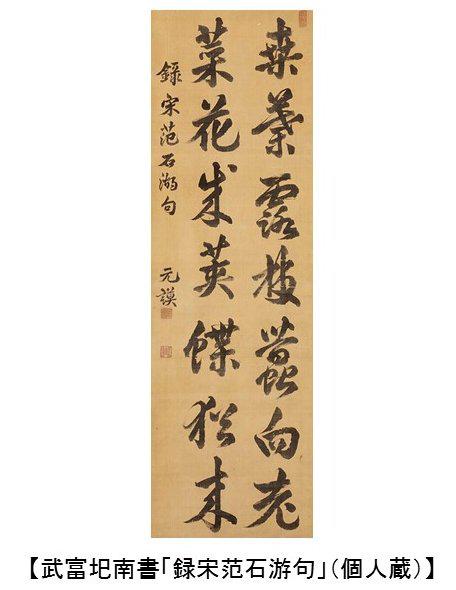 桒葉露枝蠶向老
菜花成莢蝶猶来
録宋范石湖句 元謨
【武富圯南書「録宋范石游句」(個人蔵)】